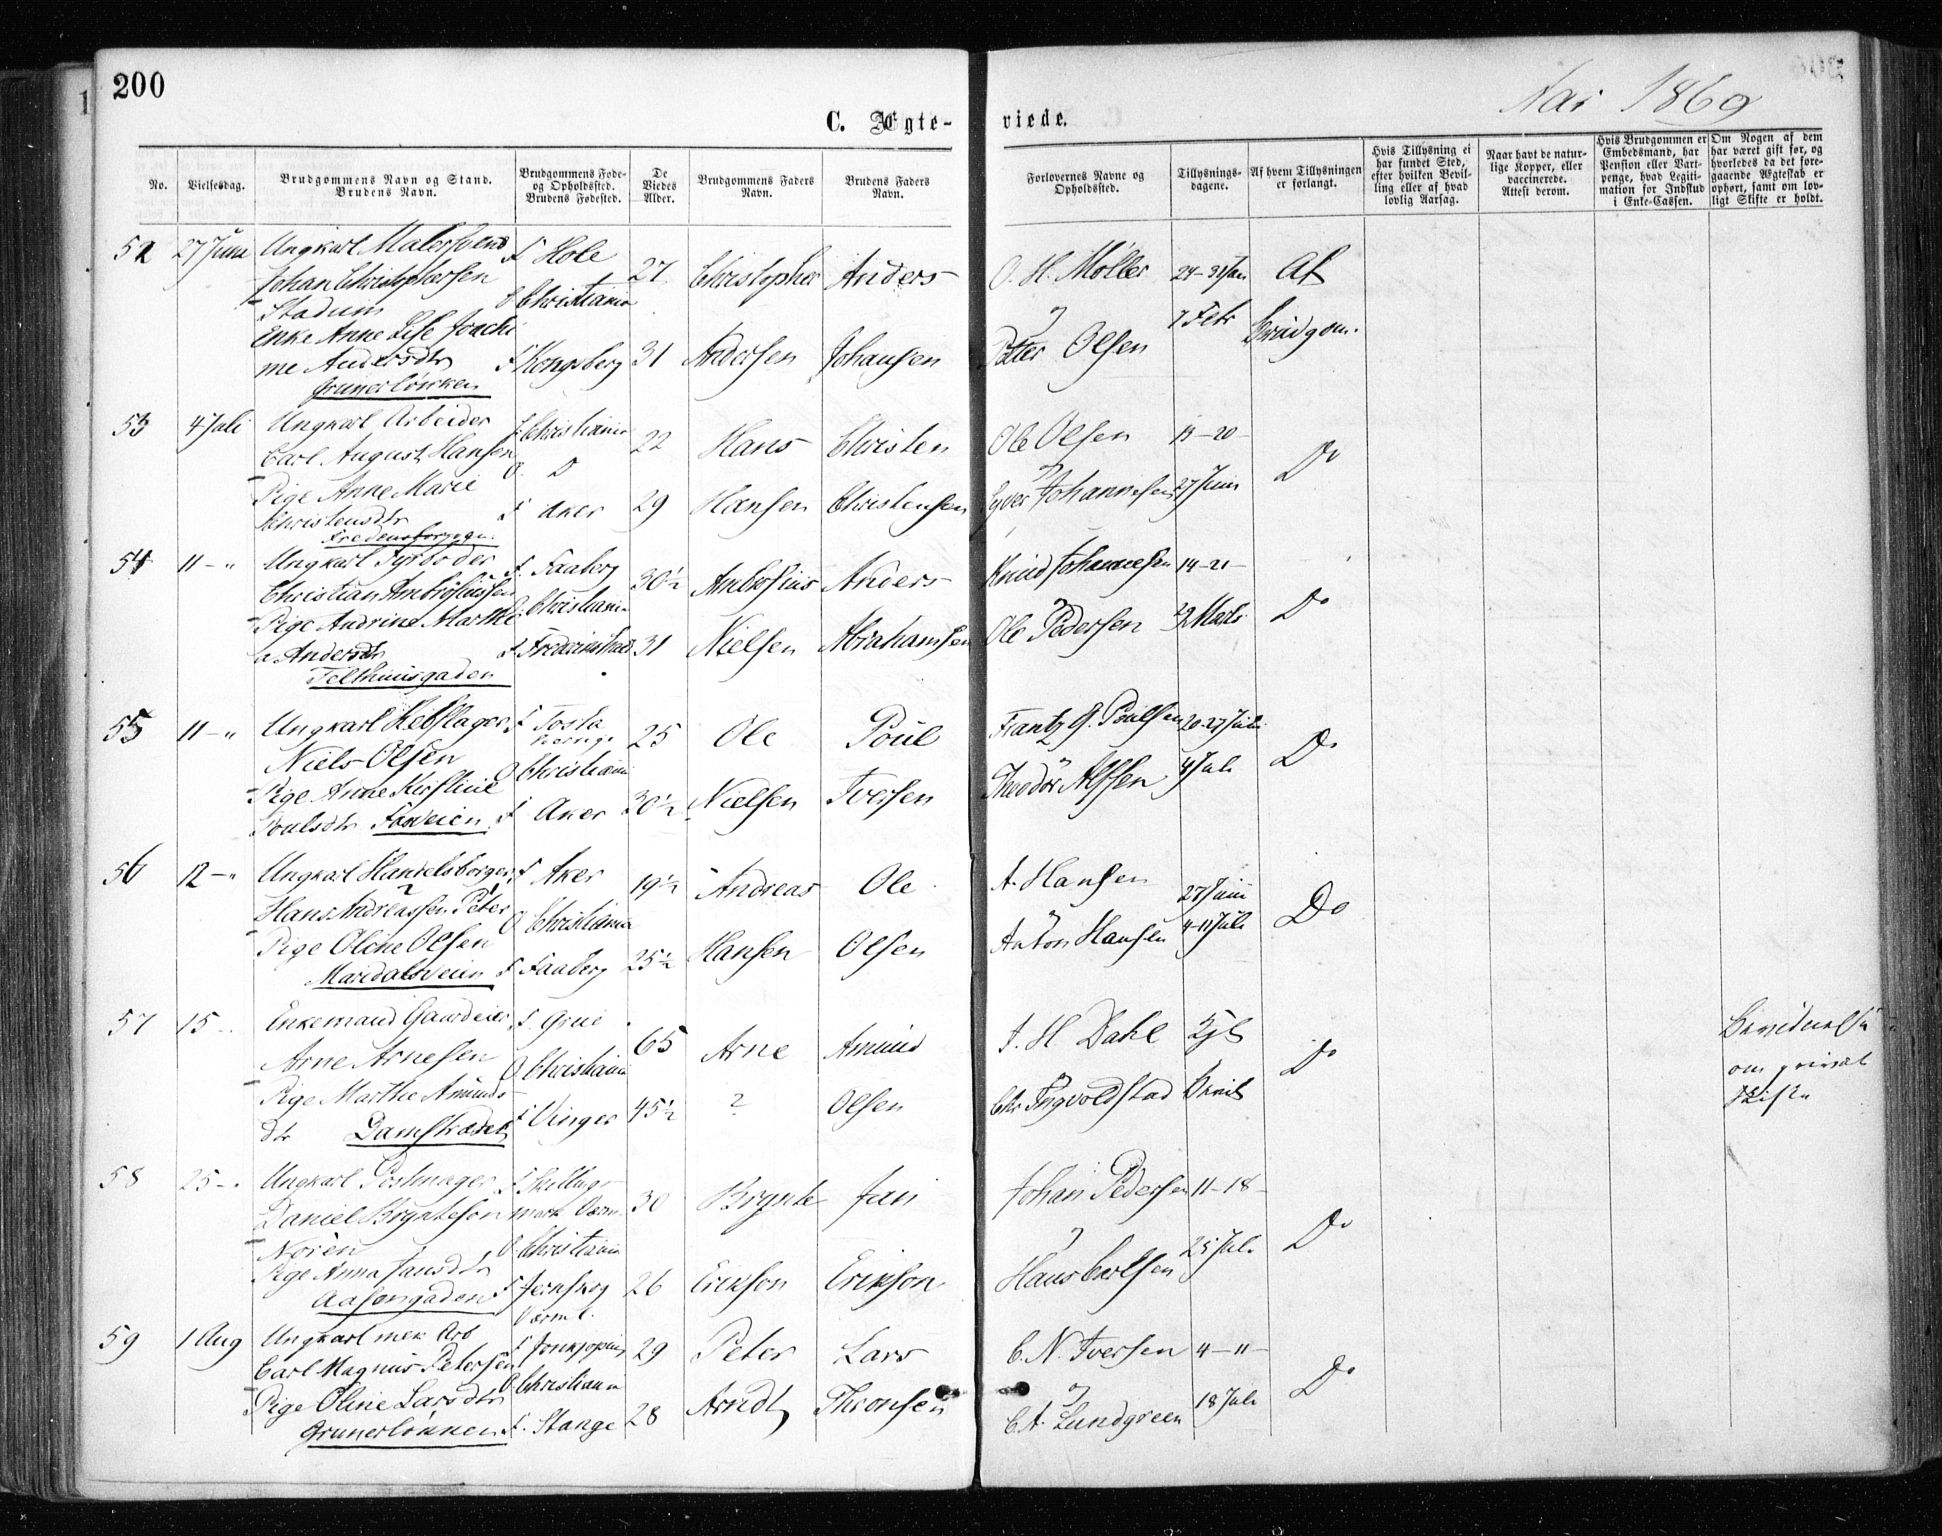 200
Aar 1869
C. Ægte-
viede.
No.
Vielsesdag.
Brudgommens Navn og Stand.
Brudens Navn.
Brudgommens Føde-
og Opholdssted.
Brudens Fødested.
De
Viedes
Alder.
Brudgommens Faders
Navn.
Brudens Faders
Navn.
Forlovernes Navne og
Opholdssted.
Tillysnings-
dagene.
Af hvem Tillysningen
er forlangt.
Hvis Tillysning ei
har fundet Sted,
efter hvilken Bevil-
ling eller af hvad
lovlig Aarsag.
Naar havt de natur-
lige Kopper, eller
vaccinerede.
Attest derom.
Hvis Brudgommen er
Embedsmand, har
Pension eller Vart-
penge, hvad Legiti-
mation for Indskud
i Enke-Cassen.
Om Nogen af dem
har været gift før, og
hvorledes da det fore-
gaaende Ægteskab er
ophørt, samt om lov-
ligt Skifte er holdt.
52 27 Juni Ungkarl Malersvend F Hole 27 Christopher Anders O. H. Møller 24-31 Jan Af
Johan Christophersen O Christiania
Stadum 7 Febr Brudgom.
Enke Anne Lise Joachi
me Andersdtr F Kongsberg 31 Andersen Johansen Petter Olsen
Grunerløkken
53 4 Juli Ungkarl Arbeider F. Christiania 22 Hans Christen Ole Olsen 13-20-
Carl August Hansen O. D Do
Pige Anne Marie F Aker 29 Hansen Christensen Johannesen 27 Juni
Christensdtr
54 11-" Ungkarl Fyrbøder F. Faaberg 30½ Ambrosius Anders Knud Johannesen 14-21-
Christian Ambrosiussen O. Christiania Do
Pige Andrine Marthe F. Frederikshald 31 Nielsen Abrahamsen Ole Pedersen Marts
a Andersdtr
Felthuusgaden
55 11-" Ungkarl Rebslager F Tosta 25 Ole Poul Frantz G. Poulsen 20-27 Juni
Niels Olsen Sverrige Do
O Christiania
Pige Anne Kirstine F Aker 30½ Nielsen Iversen Theodor Alfsen 4 Juli
Poulsdtr Fossveien
56 12-" Ungkarl Handelsborger F Aker 19½ Andreas Ole A. Hansen 27 Juni
Hans Andreassen Peter O Christiania Do
Pige Oline Olsen 25½ Hansen Olsen Anton Hansen 4-11 Juli
Maridalsveien F Faaberg
57 15-" Enkemand Gaardeier F. Grue 65 Arne Amund A. H Dahl
Arne Arnesen O Christiania Do
Pige Marthe Amunds- F Vinger 45½ ? Olsen Chr Ingvoldstad
dtr Damstrædet
om privat
Skifte
58 25-" Ungkarl Postmager F Skillings- 30 Brynte Jan Johan Pedersen 11-18-
Daniel Brynteson mark Værm.
Norén O. Christiania Do
Pige Anna Jansdtr F Jernskog 26 Erikson Erikson Hans Carlsen 25 Juli
Aasengaden Værml.
59 1 Aug Ungkarl mek Arb F Jonkjøping 29 Peter Lars C. N. Iversen 4-11-
Carl Magnus Petersen O Christiania Do
Pige Oline Larsdtr F. Stange 28 Arndt Thronsen C. A. Lundgreen 18 Juli
Grunerløkken